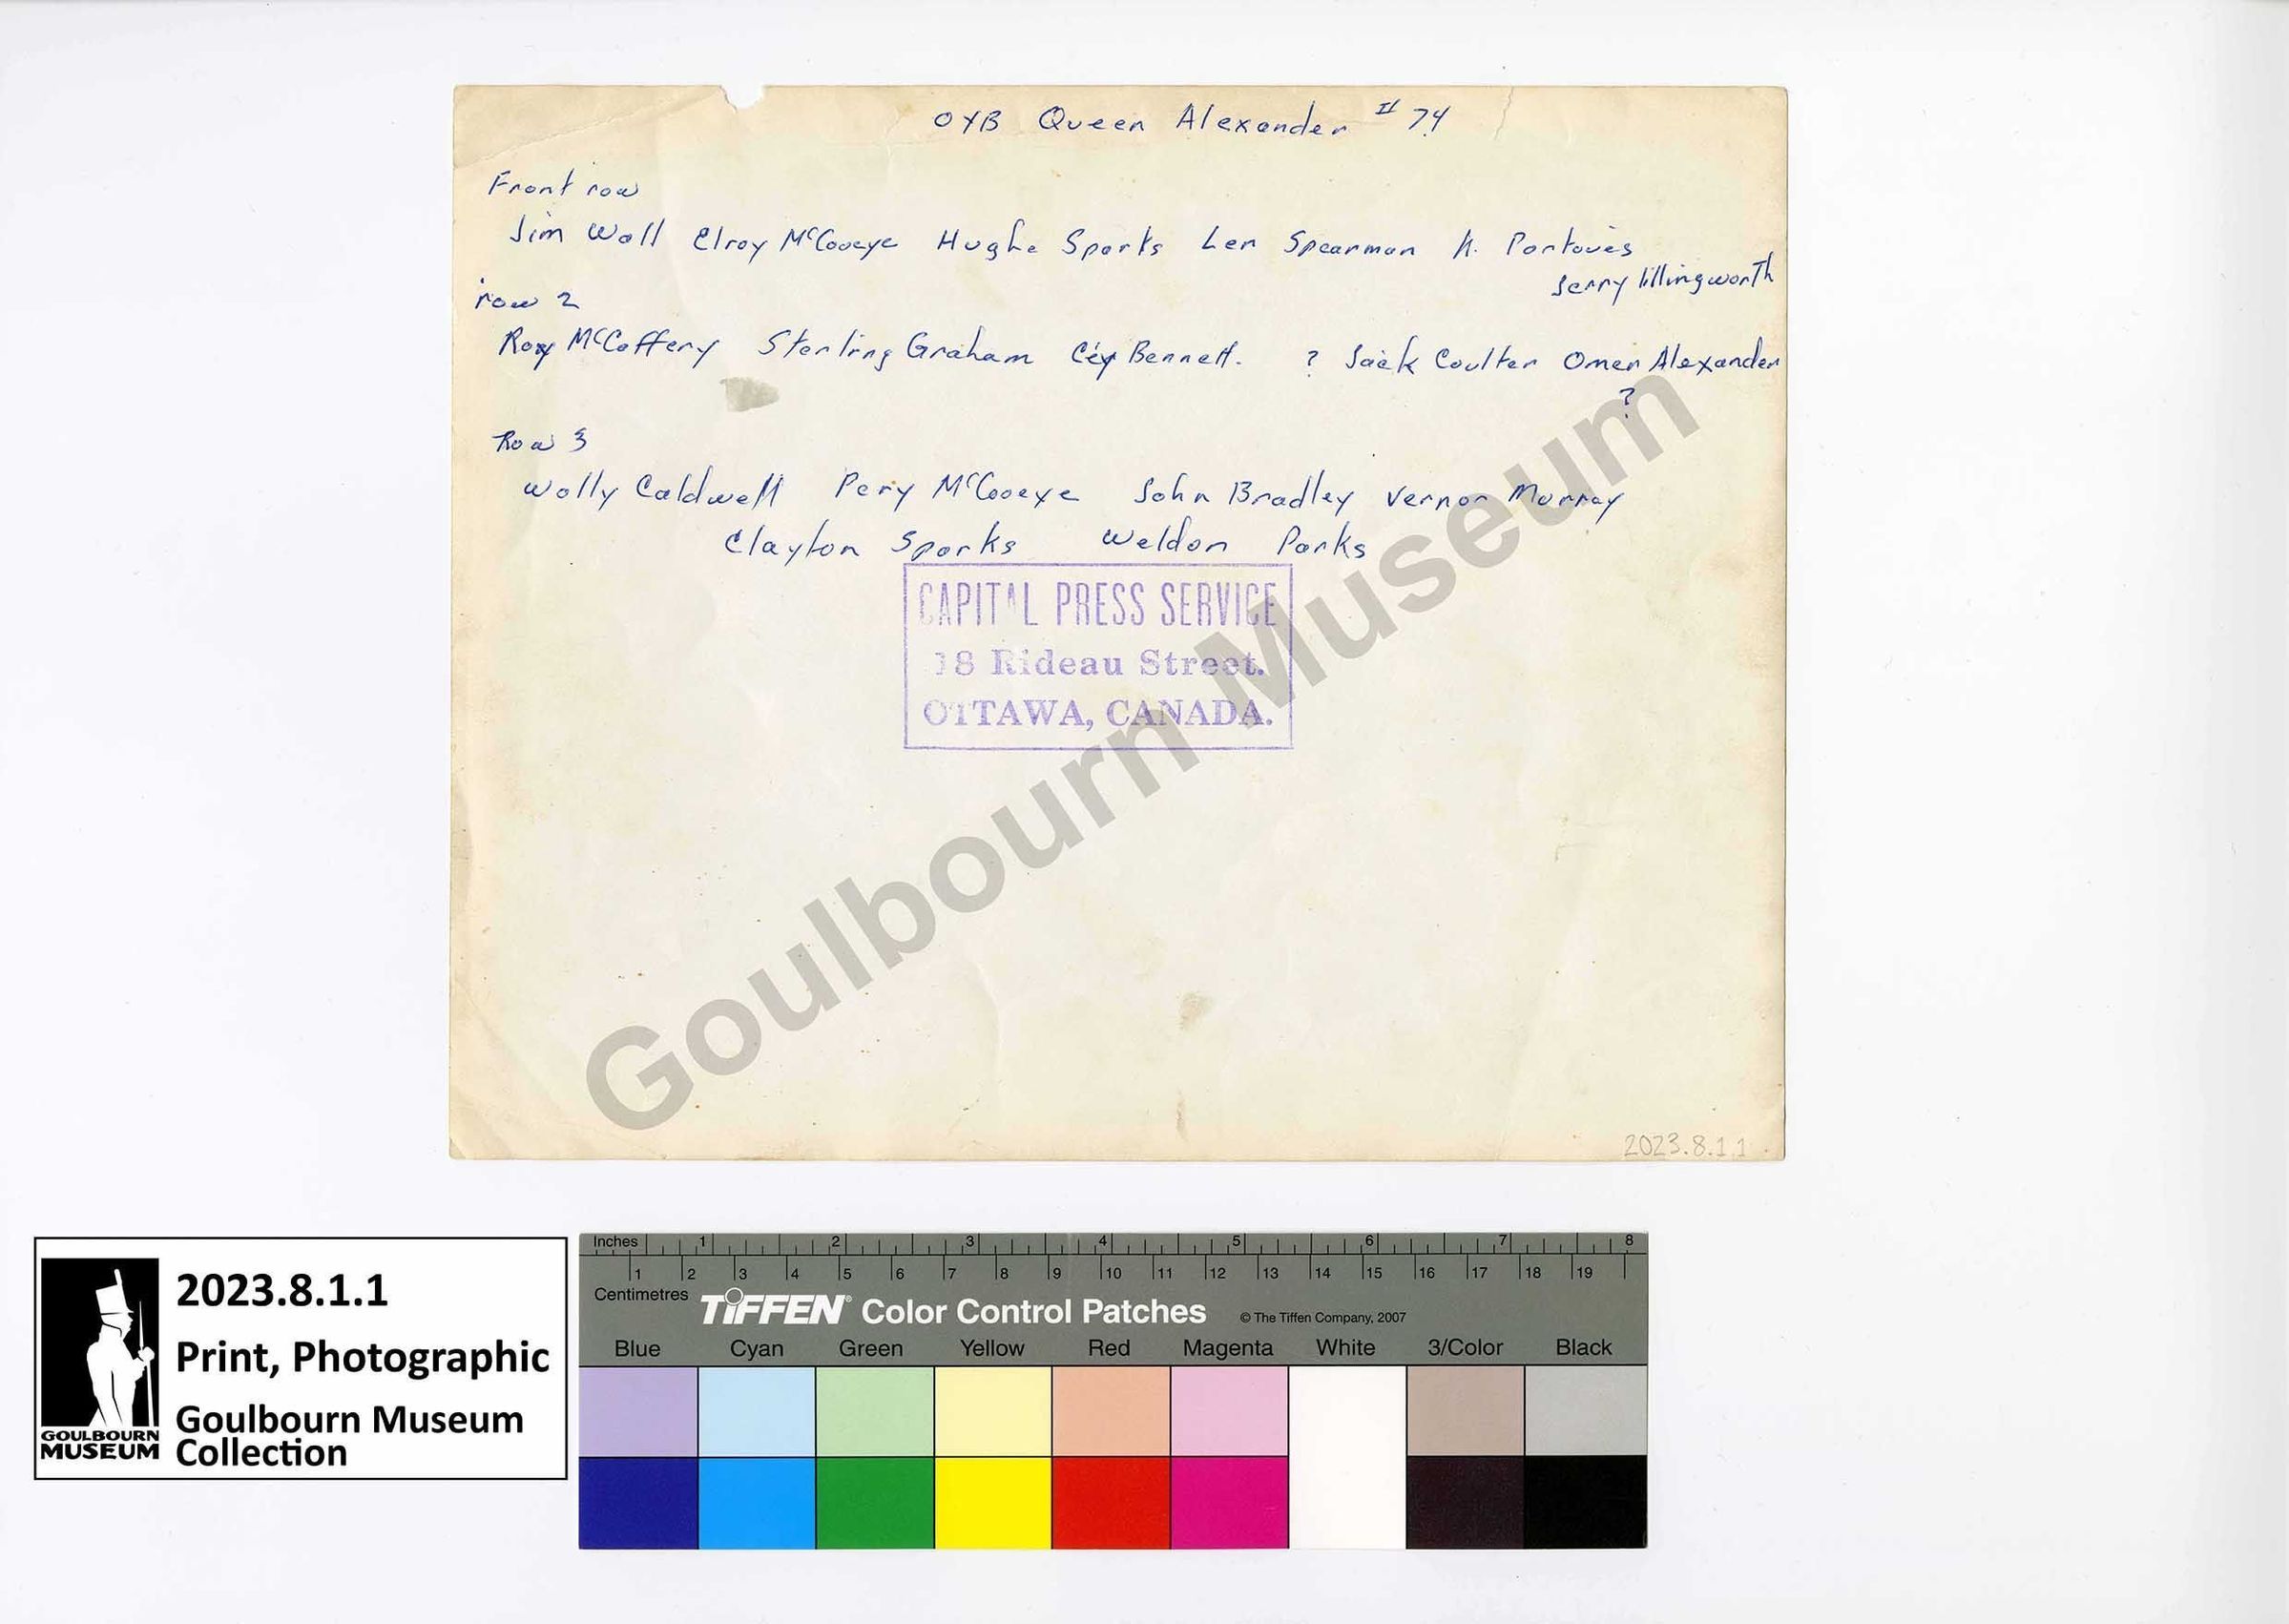 OYB Queen Alexander # 74
Front row
Jim Wall Elroy McCooeye Hughe Sparks Len Spearman
Jerry Illingworth
row 2
Roy McCaffery Sterling Graham Bennett. ? Jack Coulter Omer Alexander
?
Row 3
Wally Caldwell Pery McCooeye John Bradley Vernon Murray
Clayton Sparks Weldon Parks
CAPITAL PRESS SERVICE
18 Rideau Street.
OTTAWA, CANADA.
Goulbourn Museum
2023.8.1.1
2023.8.1.1
Print, Photographic
Goulbourn Museum
Collection
GOULBOURN
MUSEUM
Inches 1 2 3 4 5 6 7 8
1 2 3 4 5 6 7 8 9 10 11 12 13 14 15 16 17 18 19
Centimetres
TIFFEN® Color Control Patches © The Tiffen Company, 2007
Blue Cyan Green Yellow Red Magenta White 3/Color Black